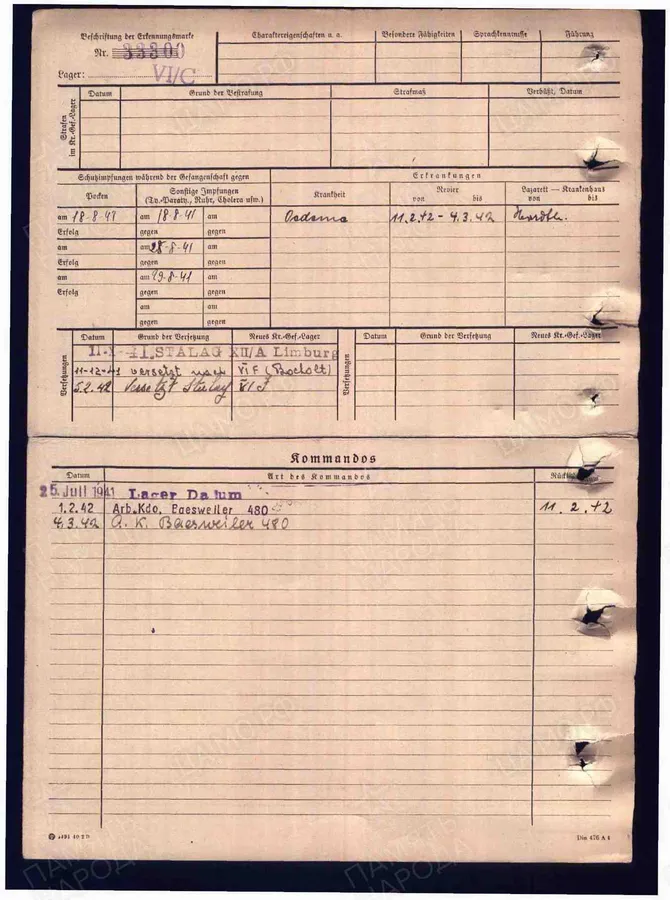 Beschriftung der Erkennungsmarke
Nr. 33300
Lager: VI/C
Charaktereigenschaften u. a.
Besondere Fähigkeiten
Sprachkenntnisse
Führung
Strafen im Kr.-Gef.-Lager
Datum
Grund der Bestrafung
Strafmaß
Verbüßt, Datum
Schutzimpfungen während der Gefangenschaft gegen
Erkrankungen
Pocken
Sonstige Impfungen
(Ty.-Paraty., Ruhr, Cholera usw.)
Krankheit
Revier
von bis
Lazarett — Krankenhaus
von bis
am 18-8-41 am 18-8-41 am
Oedema 11.2.42 - 4.3.42
Erfolg gegen gegen
am am 28-8-41 am
Erfolg gegen gegen
am am 29-8-41 am
Erfolg gegen gegen
am am
gegen gegen
Versetzungen
Datum Grund der Versetzung Neues Kr.-Gef.-Lager
Versetzungen
Datum Grund der Versetzung Neues Kr.-Gef.-Lager
STALAG XII/A Limburg
11-12-41 versetzt nach VI F (Bocholt)
5.2.42 Versetzt Stalag VI F
Kommandos
Datum Art des Kommandos
25. Juli 1941 Lager Datum
1.2.42 Arb.Kdo. Baesweiler 480 11.2.42
4.3.42 A.K. Baesweiler 480
Din 476 A 4
ЦАМО РФ
ПАМЯТЬ НАРОДА